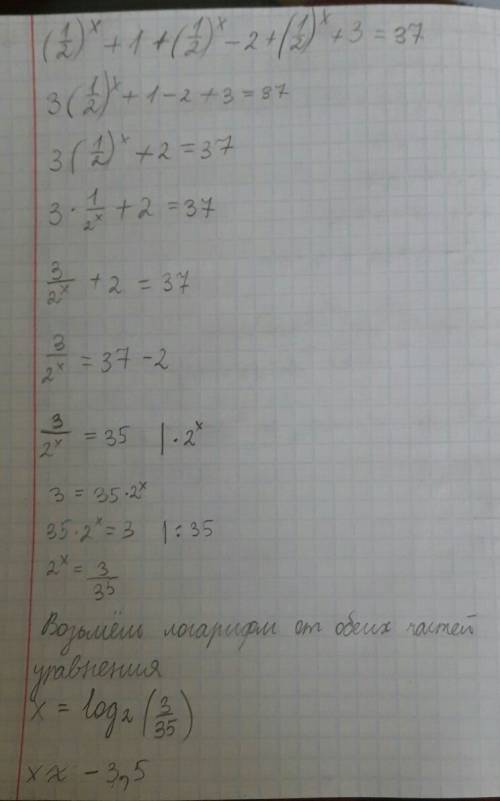 (1/2)^x + 1 + (1/2)^x - 2 + (1/2)^x + 3 = 37
3(1/2)^x + 1 - 2 + 3 = 37
3(1/2)^x + 2 = 37
3 · 1/2^x + 2 = 37
3/2^x + 2 = 37
3/2^x = 37 - 2
3/2^x = 35 | · 2^x
3 = 35 · 2^x
35 · 2^x = 3 | : 35
2^x = 3/35
Возьмём логарифм от обеих частей
уравнения
x = log₂ (3/35)
x x - 3,5